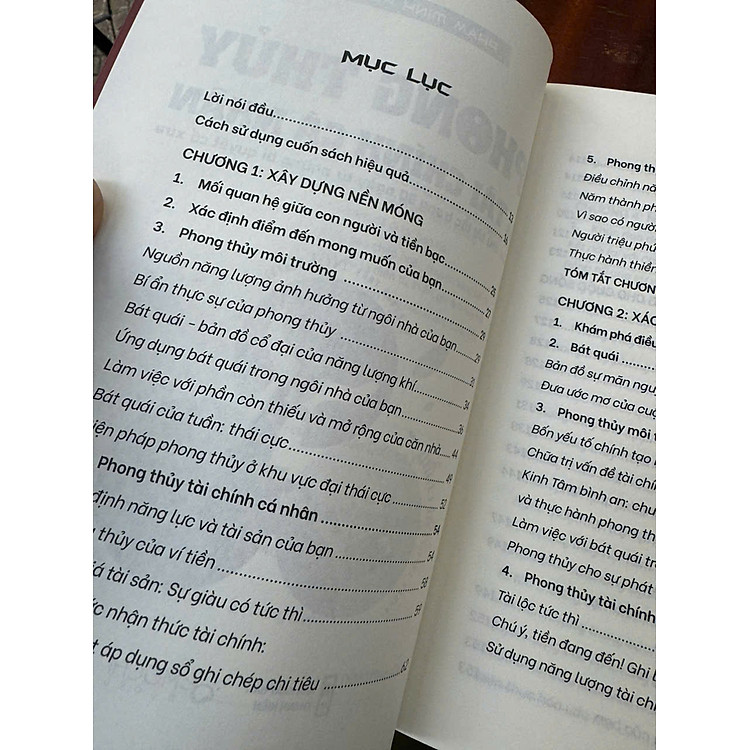 MỤC LỤC
Lời nói đầu
Cách sử dụng cuốn sách hiệu quả
CHƯƠNG 1: XÂY DỰNG NỀN MÓNG
1. Mối quan hệ giữa con người và tiền bạc
2. Xác định điểm đến mong muốn của bạn
3. Phong thủy môi trường
Nguồn năng lượng ảnh hưởng từ ngôi nhà của bạn
Bí ẩn thực sự của phong thủy
Bát quái - bản đồ cổ đại của năng lượng khí
Ứng dụng bát quái trong ngôi nhà của bạn
Làm việc với phần còn thiếu và mở rộng của căn nhà 44
Bát quái của tuần: thái cực 49
iện pháp phong thủy ở khu vực đại thái cực 52
Phong thủy tài chính cá nhân 54
định năng lực và tài sản của bạn 54
thủy của ví tiền 58
iá tài sản: Sự giàu có tức thì 59
ức nhận thức tài chính:
t áp dụng sổ ghi chép chi tiêu 62
5. Phong th
Điều chỉnh nă
Năm thành ph
Vì sao có ngườ
Người triệu phú
Thực hành thiền
TÓM TẮT CHƯƠN
CHƯƠNG 2: XÁC
1. Khám phá điều
2. Bát quái
Bản đồ sự mãn ngu
Đưa ước mơ của cuộ
3. Phong thủy môi t
Bốn yếu tố chính tạo
Chữa trị vấn đề tài chín
Kinh Tâm bình an: chu
và thực hành phong th
Làm việc với bát quái tr
Phong thủy cho sự phát
4. Phong thủy tài chính
Tài lộc tức thì
Chú ý, tiền đang đến! Ghi l
Sử dụng năng lượng tài chí